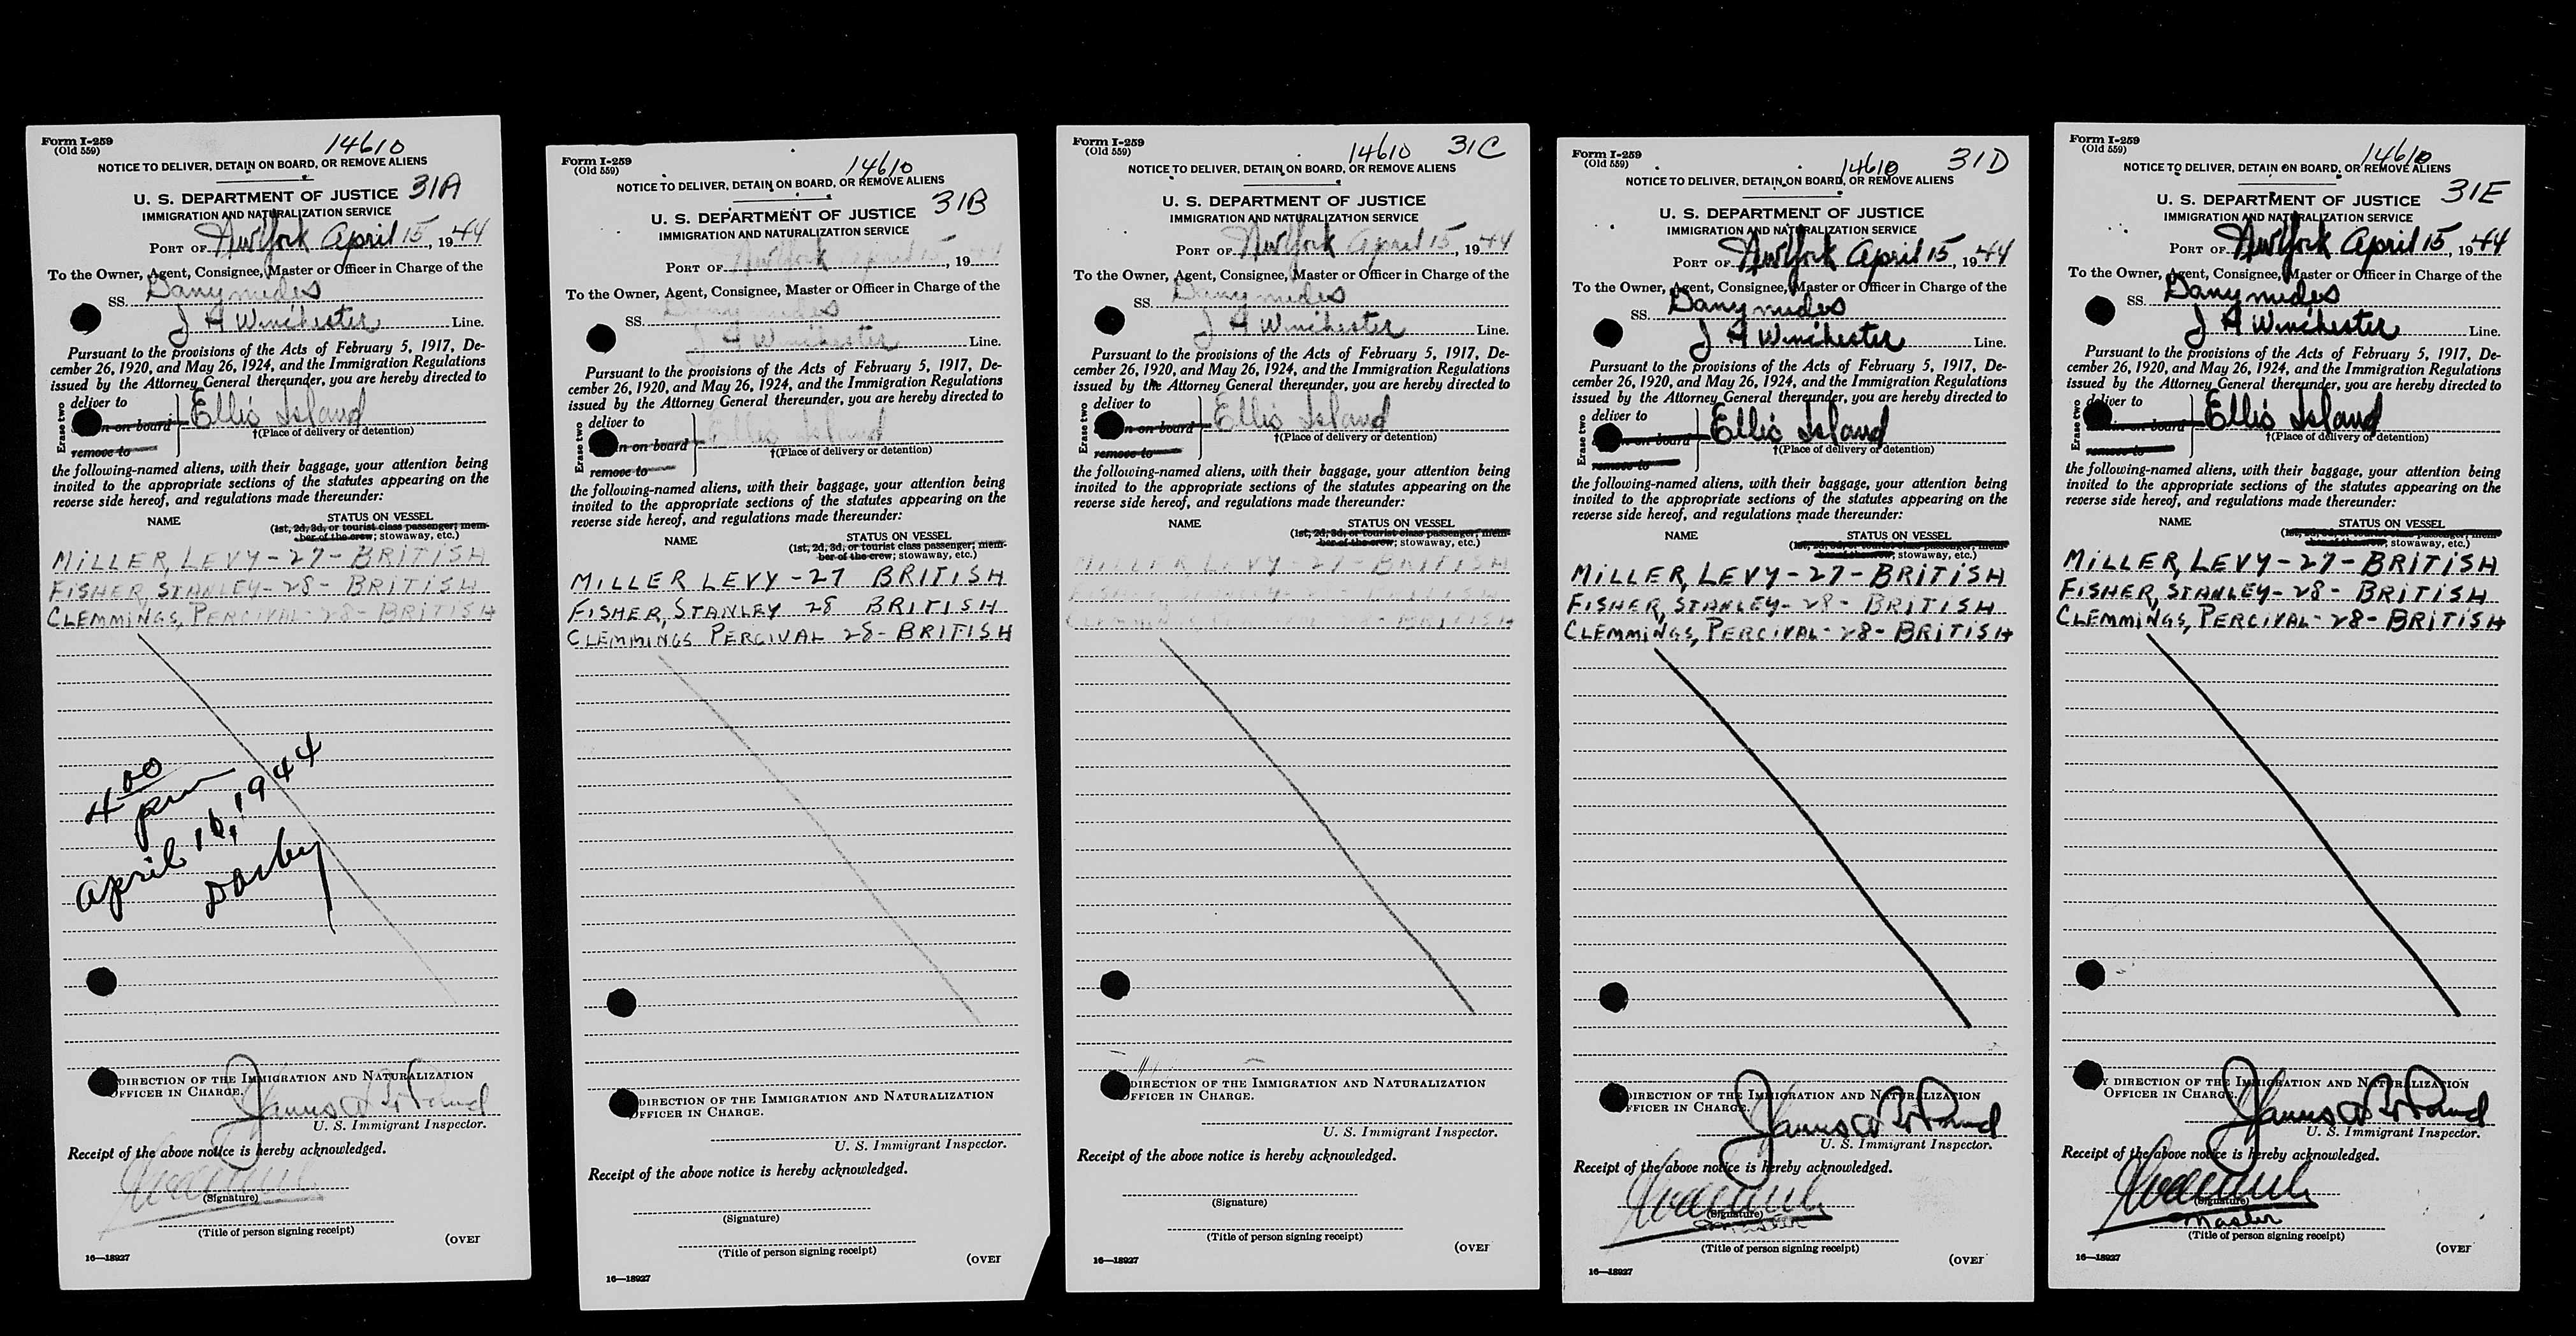 Form I-259
(Old 559)
14610
NOTICE TO DELIVER, DETAIN ON BOARD, OR REMOVE ALIENS
U. S. DEPARTMENT OF JUSTICE 31A
IMMIGRATION AND NATURALIZATION SERVICE
PORT OF New York April 15, 1944
To the Owner, Agent, Consignee, Master or Officer in Charge of the
SS. Ganymedes
J H Winchester Line.
Pursuant to the provisions of the Acts of February 5, 1917, De-
cember 26, 1920, and May 26, 1924, and the Immigration Regulations
issued by the Attorney General thereunder, you are hereby directed to
Erase two
deliver to
n on board Ellis Island
remove to
†(Place of delivery or detention)
the following-named aliens, with their baggage, your attention being
invited to the appropriate sections of the statutes appearing on the
reverse side hereof, and regulations made thereunder:
NAME STATUS ON VESSEL
(1st, 2d, 3d, or tourist class passenger; mem-
ber of the crew; stowaway, etc.)
MILLER, LEVY - 27 - BRITISH
FISHER, STANLEY - 28 - BRITISH
CLEMMINGS, PERCIVAL - 28 - BRITISH
4 00 pm
April 16, 1944
Darby
DIRECTION OF THE IMMIGRATION AND NATURALIZATION
OFFICER IN CHARGE.
U. S. Immigrant Inspector.
Receipt of the above notice is hereby acknowledged.
(Signature)
(Title of person signing receipt)
(OVER
16—18927
Form I-259
(Old 559)
14610
NOTICE TO DELIVER, DETAIN ON BOARD, OR REMOVE ALIENS
U. S. DEPARTMENT OF JUSTICE 31B
IMMIGRATION AND NATURALIZATION SERVICE
PORT OF New York April 15, 1944
To the Owner, Agent, Consignee, Master or Officer in Charge of the
SS. Ganymedes
J H Winchester Line.
Pursuant to the provisions of the Acts of February 5, 1917, De-
cember 26, 1920, and May 26, 1924, and the Immigration Regulations
issued by the Attorney General thereunder, you are hereby directed to
Erase two
deliver to
in on board Ellis Island
remove to
†(Place of delivery or detention)
the following-named aliens, with their baggage, your attention being
invited to the appropriate sections of the statutes appearing on the
reverse side hereof, and regulations made thereunder:
NAME STATUS ON VESSEL
(1st, 2d, 3d, or tourist class passenger; mem-
ber of the crew; stowaway, etc.)
MILLER LEVY - 27 BRITISH
FISHER, STANLEY 28 BRITISH
CLEMMINGS PERCIVAL 28 - BRITISH
DIRECTION OF THE IMMIGRATION AND NATURALIZATION
OFFICER IN CHARGE.
U. S. Immigrant Inspector.
Receipt of the above notice is hereby acknowledged.
(Signature)
(Title of person signing receipt)
(OVER
16—18927
Form I-259
(Old 559)
14610 31C
NOTICE TO DELIVER, DETAIN ON BOARD, OR REMOVE ALIENS
U. S. DEPARTMENT OF JUSTICE
IMMIGRATION AND NATURALIZATION SERVICE
PORT OF New York April 15, 1944
To the Owner, Agent, Consignee, Master or Officer in Charge of the
SS. Ganymedes
J H Winchester Line.
Pursuant to the provisions of the Acts of February 5, 1917, De-
cember 26, 1920, and May 26, 1924, and the Immigration Regulations
issued by the Attorney General thereunder, you are hereby directed to
Erase two
deliver to
n on board Ellis Island
remove to
†(Place of delivery or detention)
the following-named aliens, with their baggage, your attention being
invited to the appropriate sections of the statutes appearing on the
reverse side hereof, and regulations made thereunder:
NAME STATUS ON VESSEL
(1st, 2d, 3d, or tourist class passenger; mem-
ber of the crew; stowaway, etc.)
MILLER, LEVY - 27 - BRITISH
FISHER, STANLEY - 28 - BRITISH
CLEMMINGS, PERCIVAL - 28 - BRITISH
DIRECTION OF THE IMMIGRATION AND NATURALIZATION
OFFICER IN CHARGE.
U. S. Immigrant Inspector.
Receipt of the above notice is hereby acknowledged.
(Signature)
(Title of person signing receipt)
(OVER
16—18927
Form I-259
(Old 559)
14610 31D
NOTICE TO DELIVER, DETAIN ON BOARD, OR REMOVE ALIENS
U. S. DEPARTMENT OF JUSTICE
IMMIGRATION AND NATURALIZATION SERVICE
PORT OF New York April 15, 1944
To the Owner, Agent, Consignee, Master or Officer in Charge of the
SS. Ganymedes
J H Winchester Line.
Pursuant to the provisions of the Acts of February 5, 1917, De-
cember 26, 1920, and May 26, 1924, and the Immigration Regulations
issued by the Attorney General thereunder, you are hereby directed to
Erase two
deliver to
on board Ellis Island
remove to
†(Place of delivery or detention)
the following-named aliens, with their baggage, your attention being
invited to the appropriate sections of the statutes appearing on the
reverse side hereof, and regulations made thereunder:
NAME STATUS ON VESSEL
(1st, 2d, 3d, or tourist class passenger; mem-
ber of the crew; stowaway, etc.)
MILLER, LEVY - 27 - BRITISH
FISHER, STANLEY - 28 - BRITISH
CLEMMINGS, PERCIVAL - 28 - BRITISH
DIRECTION OF THE IMMIGRATION AND NATURALIZATION
OFFICER IN CHARGE.
U. S. Immigrant Inspector.
Receipt of the above notice is hereby acknowledged.
(Signature)
Master
(Title of person signing receipt)
(OVER
16—18927
Form I-259
(Old 559)
14610
NOTICE TO DELIVER, DETAIN ON BOARD, OR REMOVE ALIENS
U. S. DEPARTMENT OF JUSTICE 31E
IMMIGRATION AND NATURALIZATION SERVICE
PORT OF New York April 15, 1944
To the Owner, Agent, Consignee, Master or Officer in Charge of the
SS. Ganymedes
J H Winchester Line.
Pursuant to the provisions of the Acts of February 5, 1917, De-
cember 26, 1920, and May 26, 1924, and the Immigration Regulations
issued by the Attorney General thereunder, you are hereby directed to
Erase two
deliver to
in on board Ellis Island
remove to
†(Place of delivery or detention)
the following-named aliens, with their baggage, your attention being
invited to the appropriate sections of the statutes appearing on the
reverse side hereof, and regulations made thereunder:
NAME STATUS ON VESSEL
(1st, 2d, 3d, or tourist class passenger; mem-
ber of the crew; stowaway, etc.)
MILLER, LEVY - 27 - BRITISH
FISHER, STANLEY - 28 - BRITISH
CLEMMINGS, PERCIVAL - 28 - BRITISH
Y DIRECTION OF THE IMMIGRATION AND NATURALIZATION
OFFICER IN CHARGE.
U. S. Immigrant Inspector.
Receipt of the above notice is hereby acknowledged.
(Signature)
Master
(Title of person signing receipt)
(OVER
16—18927